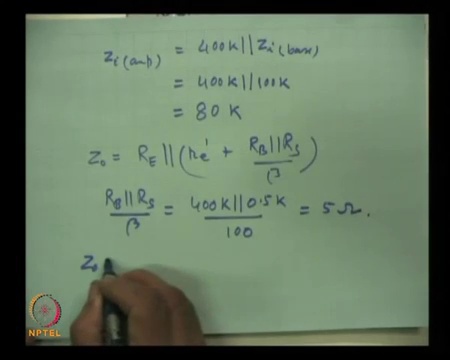 Zi(amp) = 400K || Zi(base)
= 400K || 100K
= 80 K
Zo = RE || (re' + RB || RS / β)
RB || RS / β = 400K || 0.5K / 100 = 5 Ω.
Zo
NPTEL